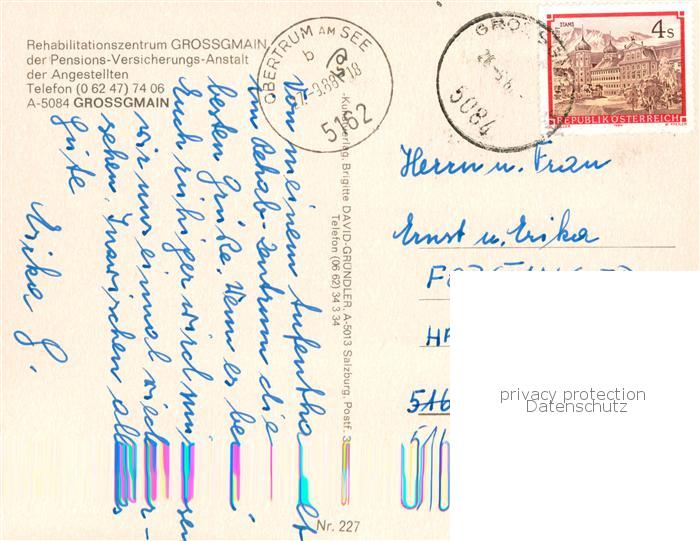 Rehabilitationszentrum GROSSGMAIN
der Pensions-Versicherungs-Anstalt
der Angestellten
Telefon (0 62 47) 74 06
A-5084 GROSSGMAIN
OBERTRUM AM SEE
b
5162
5084
STAMS
4 S
REPUBLIK ÖSTERREICH
Von meinem Aufenthalt
im Rehab-Zentrum die
besten Grüße. Wenn es bei
Euch ruhiger wird müssen
wir uns einmal wieder-
sehen. Inzwischen alles
Gute
Erika G.
Kunstverlag Brigitte DAVID-GRUNDLER, A-5013 Salzburg, Postf. 3
Telefon (06 62) 34 3 34
Nr. 227
Herrn u. Frau
Ernst u. Erika
516
516
privacy protection
Datenschutz